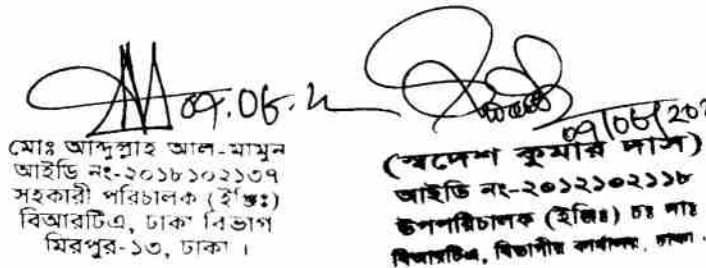 ০৭.০৬.২
০৭/০৬/২০২
মোঃ আব্দুল্লাহ আল-মামুন
আইডি নং-২০১৮১০২১৩৭
সহকারী পরিচালক (ইঞ্জিঃ)
বিআরটিএ, ঢাকা বিভাগ
মিরপুর-১৩, ঢাকা ।
(স্বদেশ কুমার দাস)
আইডি নং-২০১২১০২১১৮
উপপরিচালক (ইঞ্জিঃ) চঃ দাঃ
বিআরটিএ, বিভাগীয় কার্যালয়, ঢাকা ।